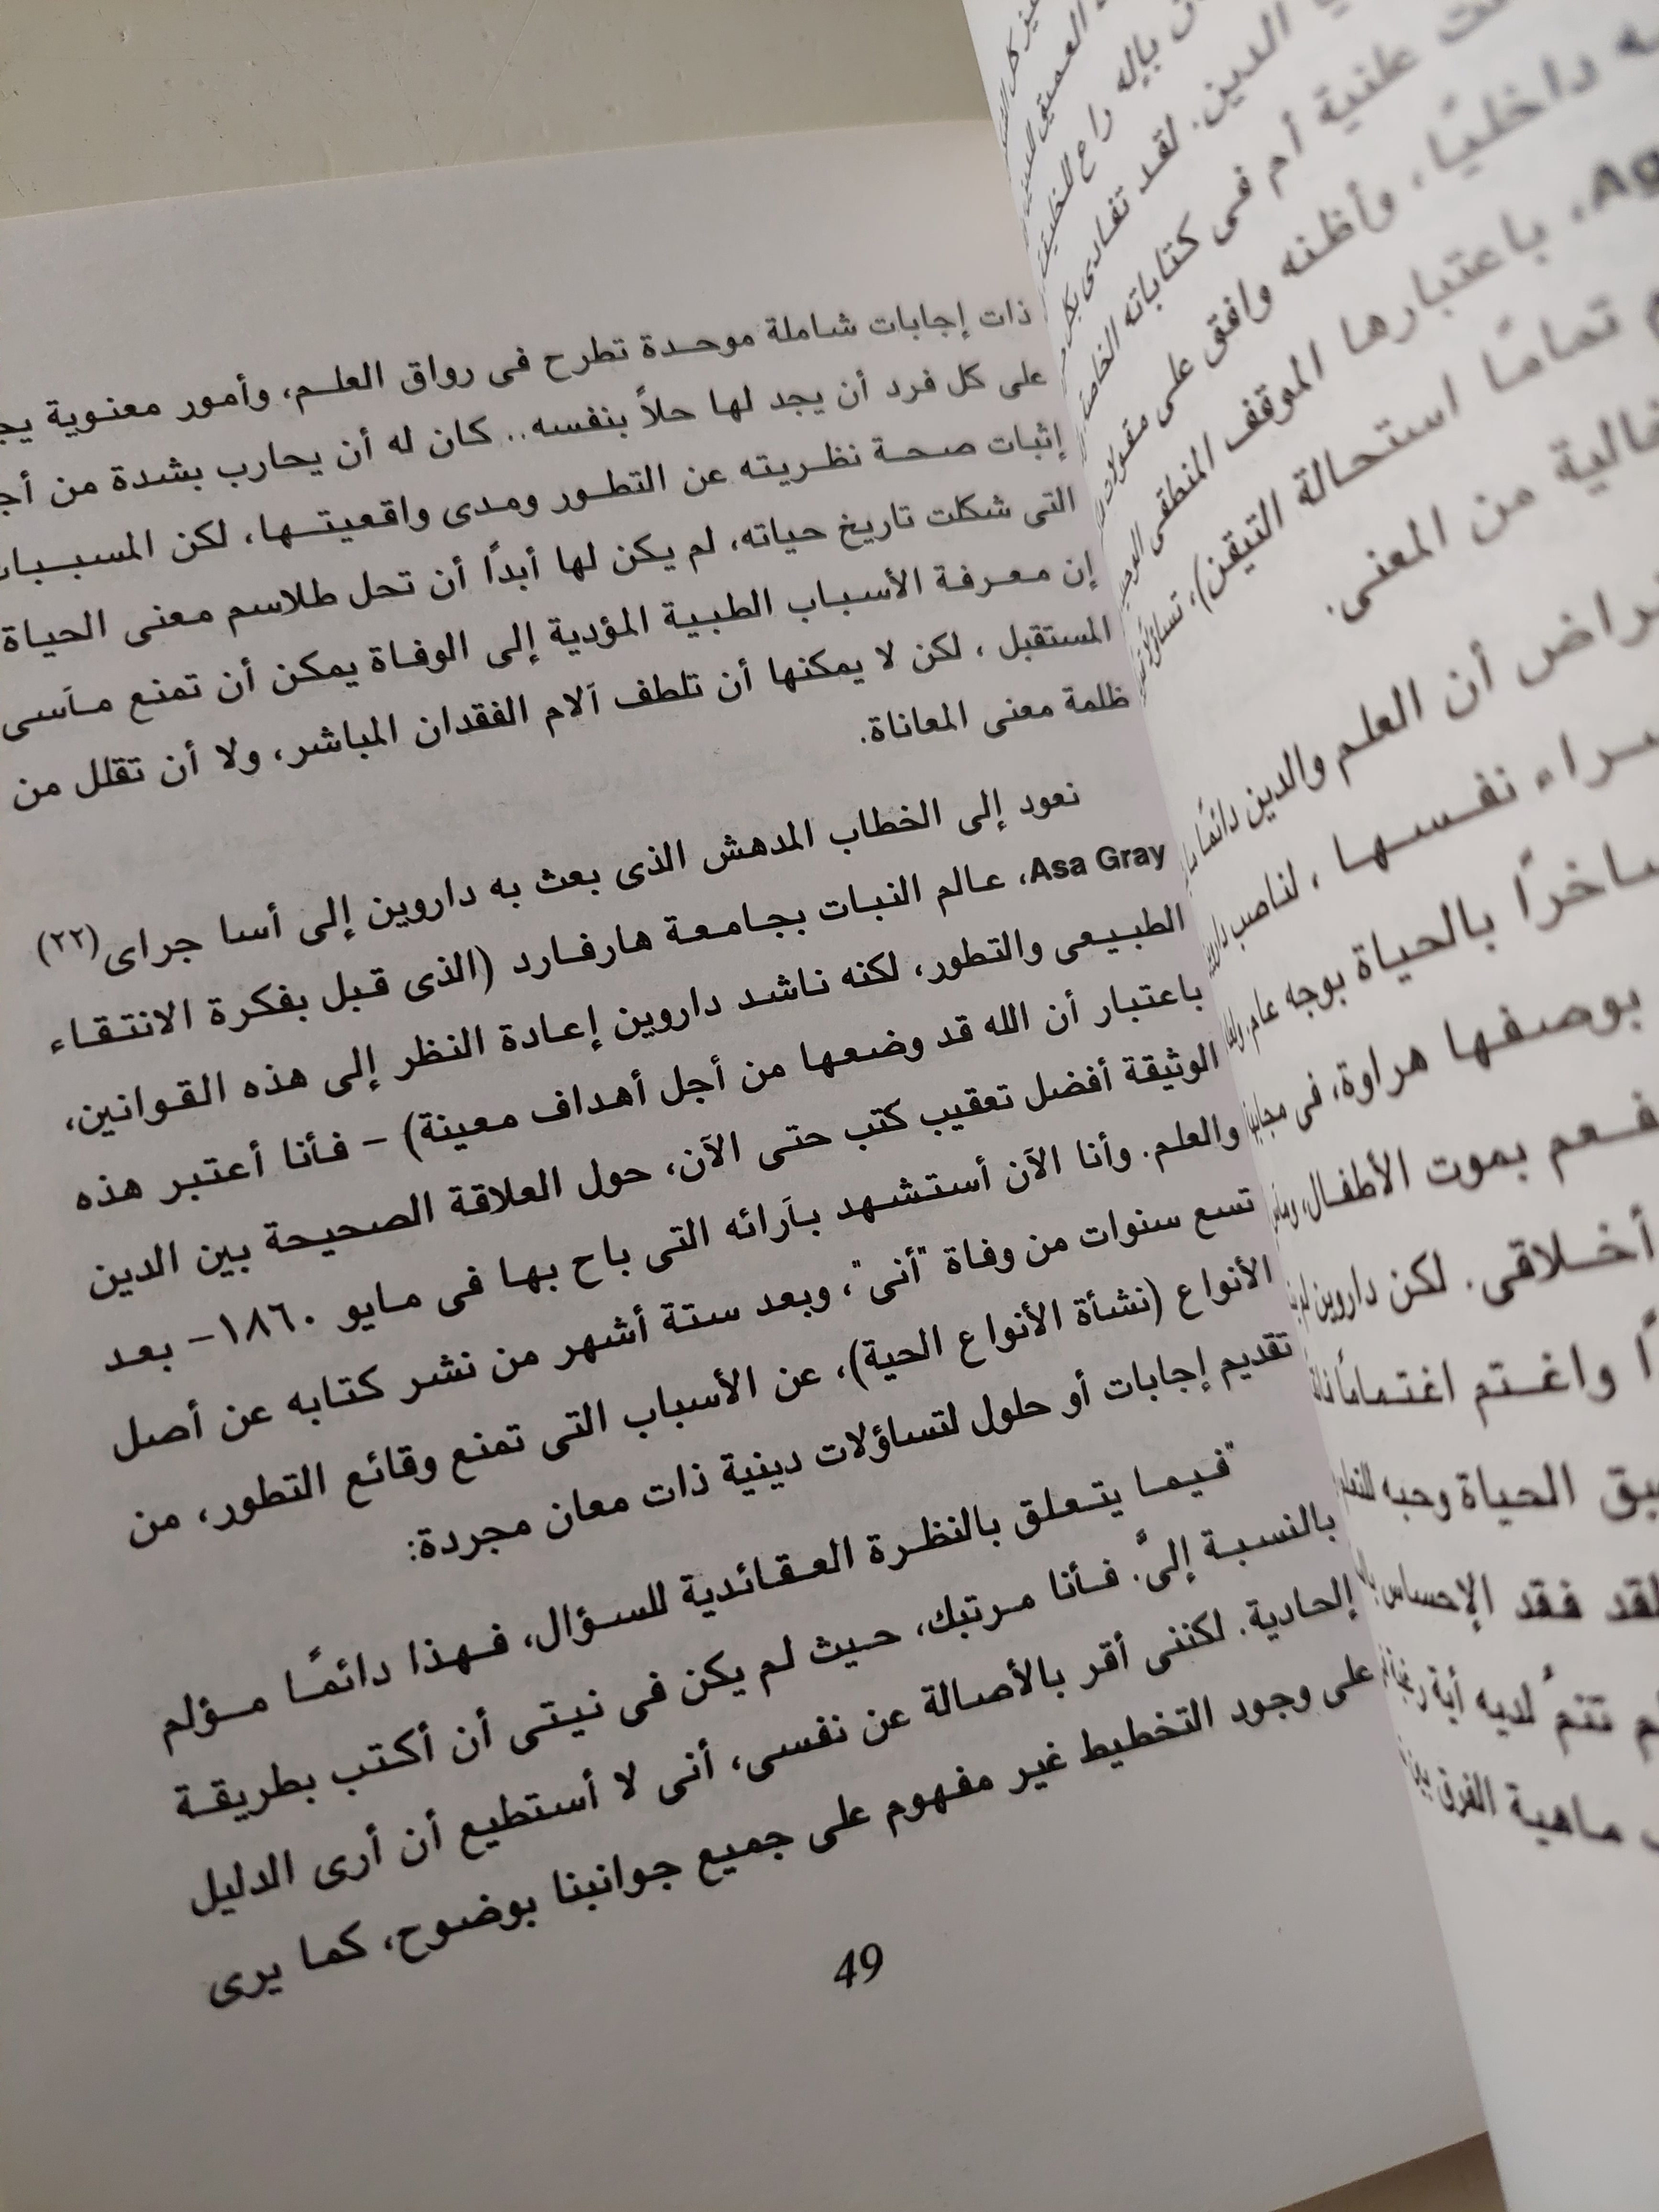 ذات إجابات شاملة موحدة تطرح فى رواق العلم، وأمور معنوية
على كل فرد أن يجد لها حلاً بنفسه.. كان له أن يحارب بشدة من
إثبات صحة نظريته عن التطور ومدى واقعيتها، لكن المسببات
التى شكلت تاريخ حياته، لم يكن لها أبدًا أن تحل طلاسم معنى الحياة
إن معرفة الأسباب الطبية المؤدية إلى الوفاة يمكن أن تمنع مآسى
المستقبل ، لكن لا يمكنها أن تلطف آلام الفقدان المباشر، ولا أن تقلل من
ظلمة معنى المعاناة.
نعود إلى الخطاب المدهش الذى بعث به داروين إلى أسا جراى(٢٢)
Asa Gray، عالم النبات بجامعة هارفارد (الذى قبل بفكرة الانتقاء
الطبيعى والتطور، لكنه ناشد داروين إعادة النظر إلى هذه القوانين،
باعتبار أن الله قد وضعها من أجل أهداف معينة) – فأنا أعتبر هذه
الوثيقة أفضل تعقيب كتب حتى الآن، حول العلاقة الصحيحة بين الدين
والعلم. وأنا الآن أستشهد بآرائه التى باح بها فى مايو ١٨٦٠– بعد
تسع سنوات من وفاة "أنى"، وبعد ستة أشهر من نشر كتابه عن أصل
الأنواع (نشأة الأنواع الحية)، عن الأسباب التى تمنع وقائع التطور، من
تقديم إجابات أو حلول لتساؤلات دينية ذات معان مجردة:
"فيما يتعلق بالنظرة العقائدية للسؤال، فهذا دائمًا مؤلم
بالنسبة إلىَّ. فأنا مرتبك، حيث لم يكن فى نيتى أن أكتب بطريقة
إلحادية. لكننى أقر بالأصالة عن نفسى، أنى لا أستطيع أن أرى الدليل
على وجود التخطيط غير مفهوم على جميع جوانبنا بوضوح، كما يرى
49
الدين. لقد تفادى
علنية أم فى كتاباته الخاصة
داخليًا، وأظنه وافق على
باعتبارها الموقف المنطقى
تمامًا استحالة التيقن)،
خالية من المعنى.
أن العلم والدين دائمًا
نفسها ، لناصب
ساخرًا بالحياة بوجه عام
بوصفها هراوة، فى
بموت الأطفال،
أخلاقى. لكن داروين
واغتم اغتمامًا
الحياة وحبه
لقد فقد الإحساس
تنمُ لديه أية
ماهية الفرق